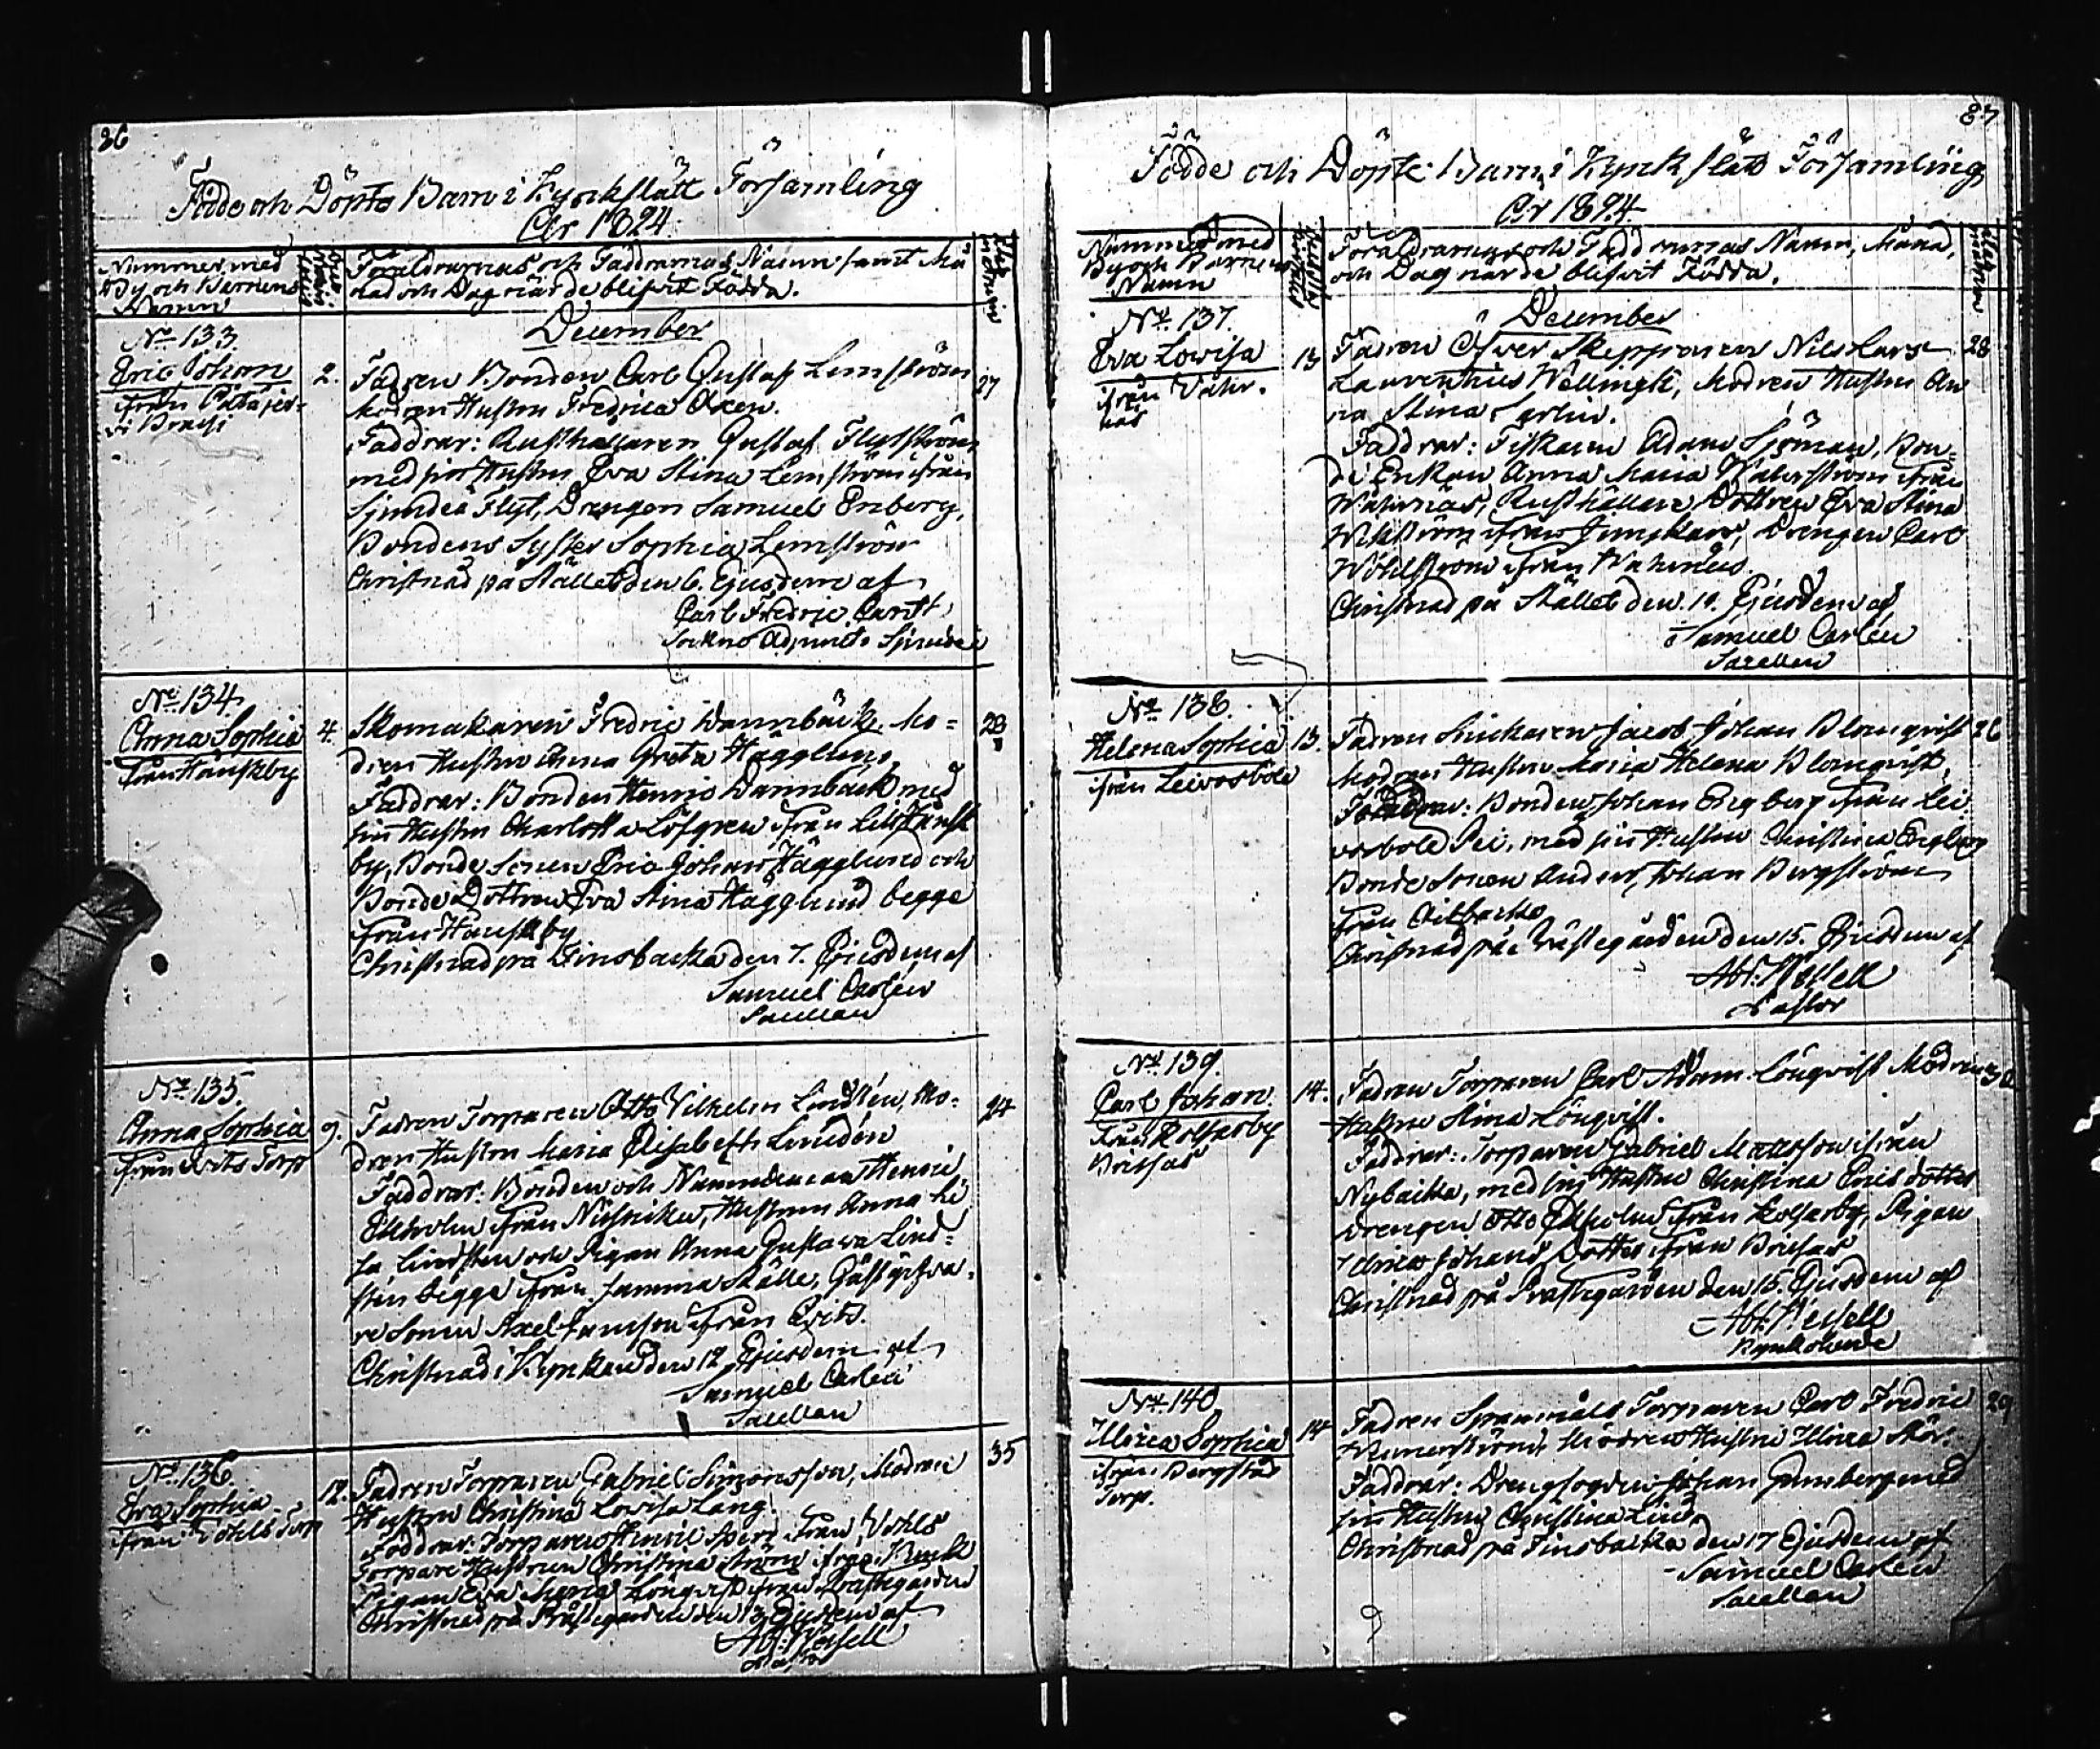 86
Födde och Döpte Barn i Kyrkslätt Församling
År 1824.
Nummer med
By och Barnens
Namn
Föräldrarnas och Faddrarnas Namn samt Må
nad och Dag när de blifvit Födda.
December
No 133
Eric Johan
ifrån
2.
Fadren Bonden Carl Gustaf Lemström
27
Modren Hustru Fredrica Oxen.
Faddrar: Rusthållaren Gustaf Flytström
med sin Hustru Eva Stina Lemström ifrån
Sjundeå Flyt, Drengen Samuel Enberg,
Bondens Syster Sophia Lemström
Christnad på Stället den 6. Ejusdem af
Carl Fredric
Sockne Adjunct i Sjundeå
No 134
Anna Sophia
från Hanskby
4.
Skomakaren Fredric Dannbäck. Mo=
23
dren Hustru Anna Greta Hägglund
Faddrar: Bonden Henric Dannback med
sin Hustru Charlotta Löfgren ifrån
by, Bonde Sonen Eric Johan Hägglund och
Bonde Dottren Eva Stina Hägglund begge
från Hanskby
Christnad på Finsbacka den 7. Ejusdem af
Samuel Carlen
Sacellan
No 135.
Anna Sophia
från Torp
9.
Fadren Torparen Otto Vilhelm Lindsten, Mo=
24
dren Hustru Maria Elisabeth Lindén
Faddrar: Bonden och Nämndeman Henric
Ekholm från, Hustrun Anna Li
sa Lindsten och Pigan Anna Gustava Lind=
sten begge från samma Ställe, Gästgifva=
re Sonen Axel från
Christnad i Kyrkan den 12 Ejusdem af
Samuel Carlen
Sacellan
No 136
Eva Sophia
från Torp
12.
Fadren Torparen Gabriel Simonsson, Modren
35
Hustru Christina Lovisa Lang
Faddrar: Torparen Henric från
Torpare Hustrun Christina Ström ifrån
Pigan Eva Maria Lönqvist ifrån Prästegården
Christnad på Prästegården den 13 Ejusdem af
Abr: Wessell
Pastor
87
Födde och Döpte Barn i Kyrkslätt Församling
År 1824
Nummer med
By och Barnens
Namn
Föräldrarnas och Faddrarnas Namn, Månad,
och Dag när de blifvit Födda.
December
No. 137.
Eva Lovisa
ifrån Vähr.
näs
13
Fadren Öfver Skepparen Nils Lars
28
Laurentius Wellingk, Modren Hustru An
na Stina Carlin.
Faddrar: Fiskaren Adam Sjöman, Bon=
de Enkan Anna Maria från
Währnäs, Rusthållare Dottren Eva Stina
Wikström ifrån, Drengen Carl
Wöhlström ifrån Währnäs.
Christnad på Stället den 19. Ejusdem af
Samuel Carlen
Sacellan
No 138.
Helena Sophia
ifrån Leivosböle
13.
Fadren Jacob Johan Blomqvist
26
Modren Hustru Maria Helena Blomqvist
Faddrar: Bonden Johan Engberg ifrån Lei
vosböle, med sin Hustru Christina Engberg
Bonde Sonen Anders Johan Bergström
från
Christnad på Prästegården den 15. Ejusdem af
Abr: Wessell
Pastor
No 139.
Carl Johan
från Kolsarby
14.
Fadren Torparen Carl Adam Lönqvist Modren
Hustru Stina Lönqvist.
Faddrar: Torparen Gabriel Mattsson ifrån
Nybacka, med sin Hustru Christina Ericsdotter
Drengen Otto Ekholm från Kolsarby, Pigan
Ulrica Johans Dotter ifrån
Christnad på Prästegården den 15. Ejusdem af
Abr: Wessell
Kyrkoherde
No 140
Ulrica Sophia
ifrån Bergstad
Torp.
14
Fadren Torparen Carl Fredric
29
Modren Hustru Ulrica
Faddrar: Drengfogden Johan Gumberg med
sin Hustru Christina Lind,
Christnad på Finsbacka den 17 Ejusdem af
Samuel Carlen
Sacellan